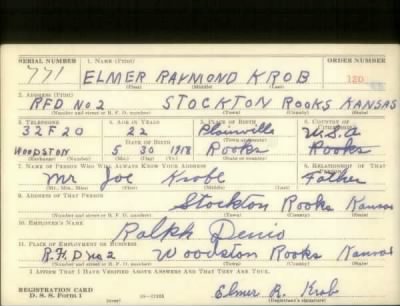 SERIAL NUMBER 1. NAME (Print) ORDER NUMBER
771 ELMER RAYMOND KROB 120
(First) (Middle) (Last)
2. ADDRESS (Print)
RFD No 2 STOCKTON ROOKS KANSAS
(Number and street or R. F. D. number) (Town) (County) (State)
3. TELEPHONE 4. AGE IN YEARS 5. PLACE OF BIRTH 6. COUNTRY OF CITIZENSHIP
32F20 22 Plainville U.S.A
DATE OF BIRTH (Town or county)
WOODSTON 5 30 1918 Rooks Rooks
(Exchange) (Number) (Mo.) (Day) (Yr.)
7. NAME OF PERSON WHO WILL ALWAYS KNOW YOUR ADDRESS 8. RELATIONSHIP OF THAT PERSON
Mr Joe Krobl Father
(Mr., Mrs., Miss) (First) (Middle) (Last)
9. ADDRESS OF THAT PERSON
Stockton Rooks Kansas
(Number and street or R. F. D. number) (Town) (County) (State)
10. EMPLOYER'S NAME
Ralph Denio
11. PLACE OF EMPLOYMENT OR BUSINESS
R.F.D no 2 Woodston Rooks Kansas
(Number and street or R. F. D. number) (Town) (County) (State)
I AFFIRM THAT I HAVE VERIFIED ABOVE ANSWERS AND THAT THEY ARE TRUE.
REGISTRATION CARD
D. S. S. Form 1 16—17105 Elmer R. Krob
(Registrant's signature)